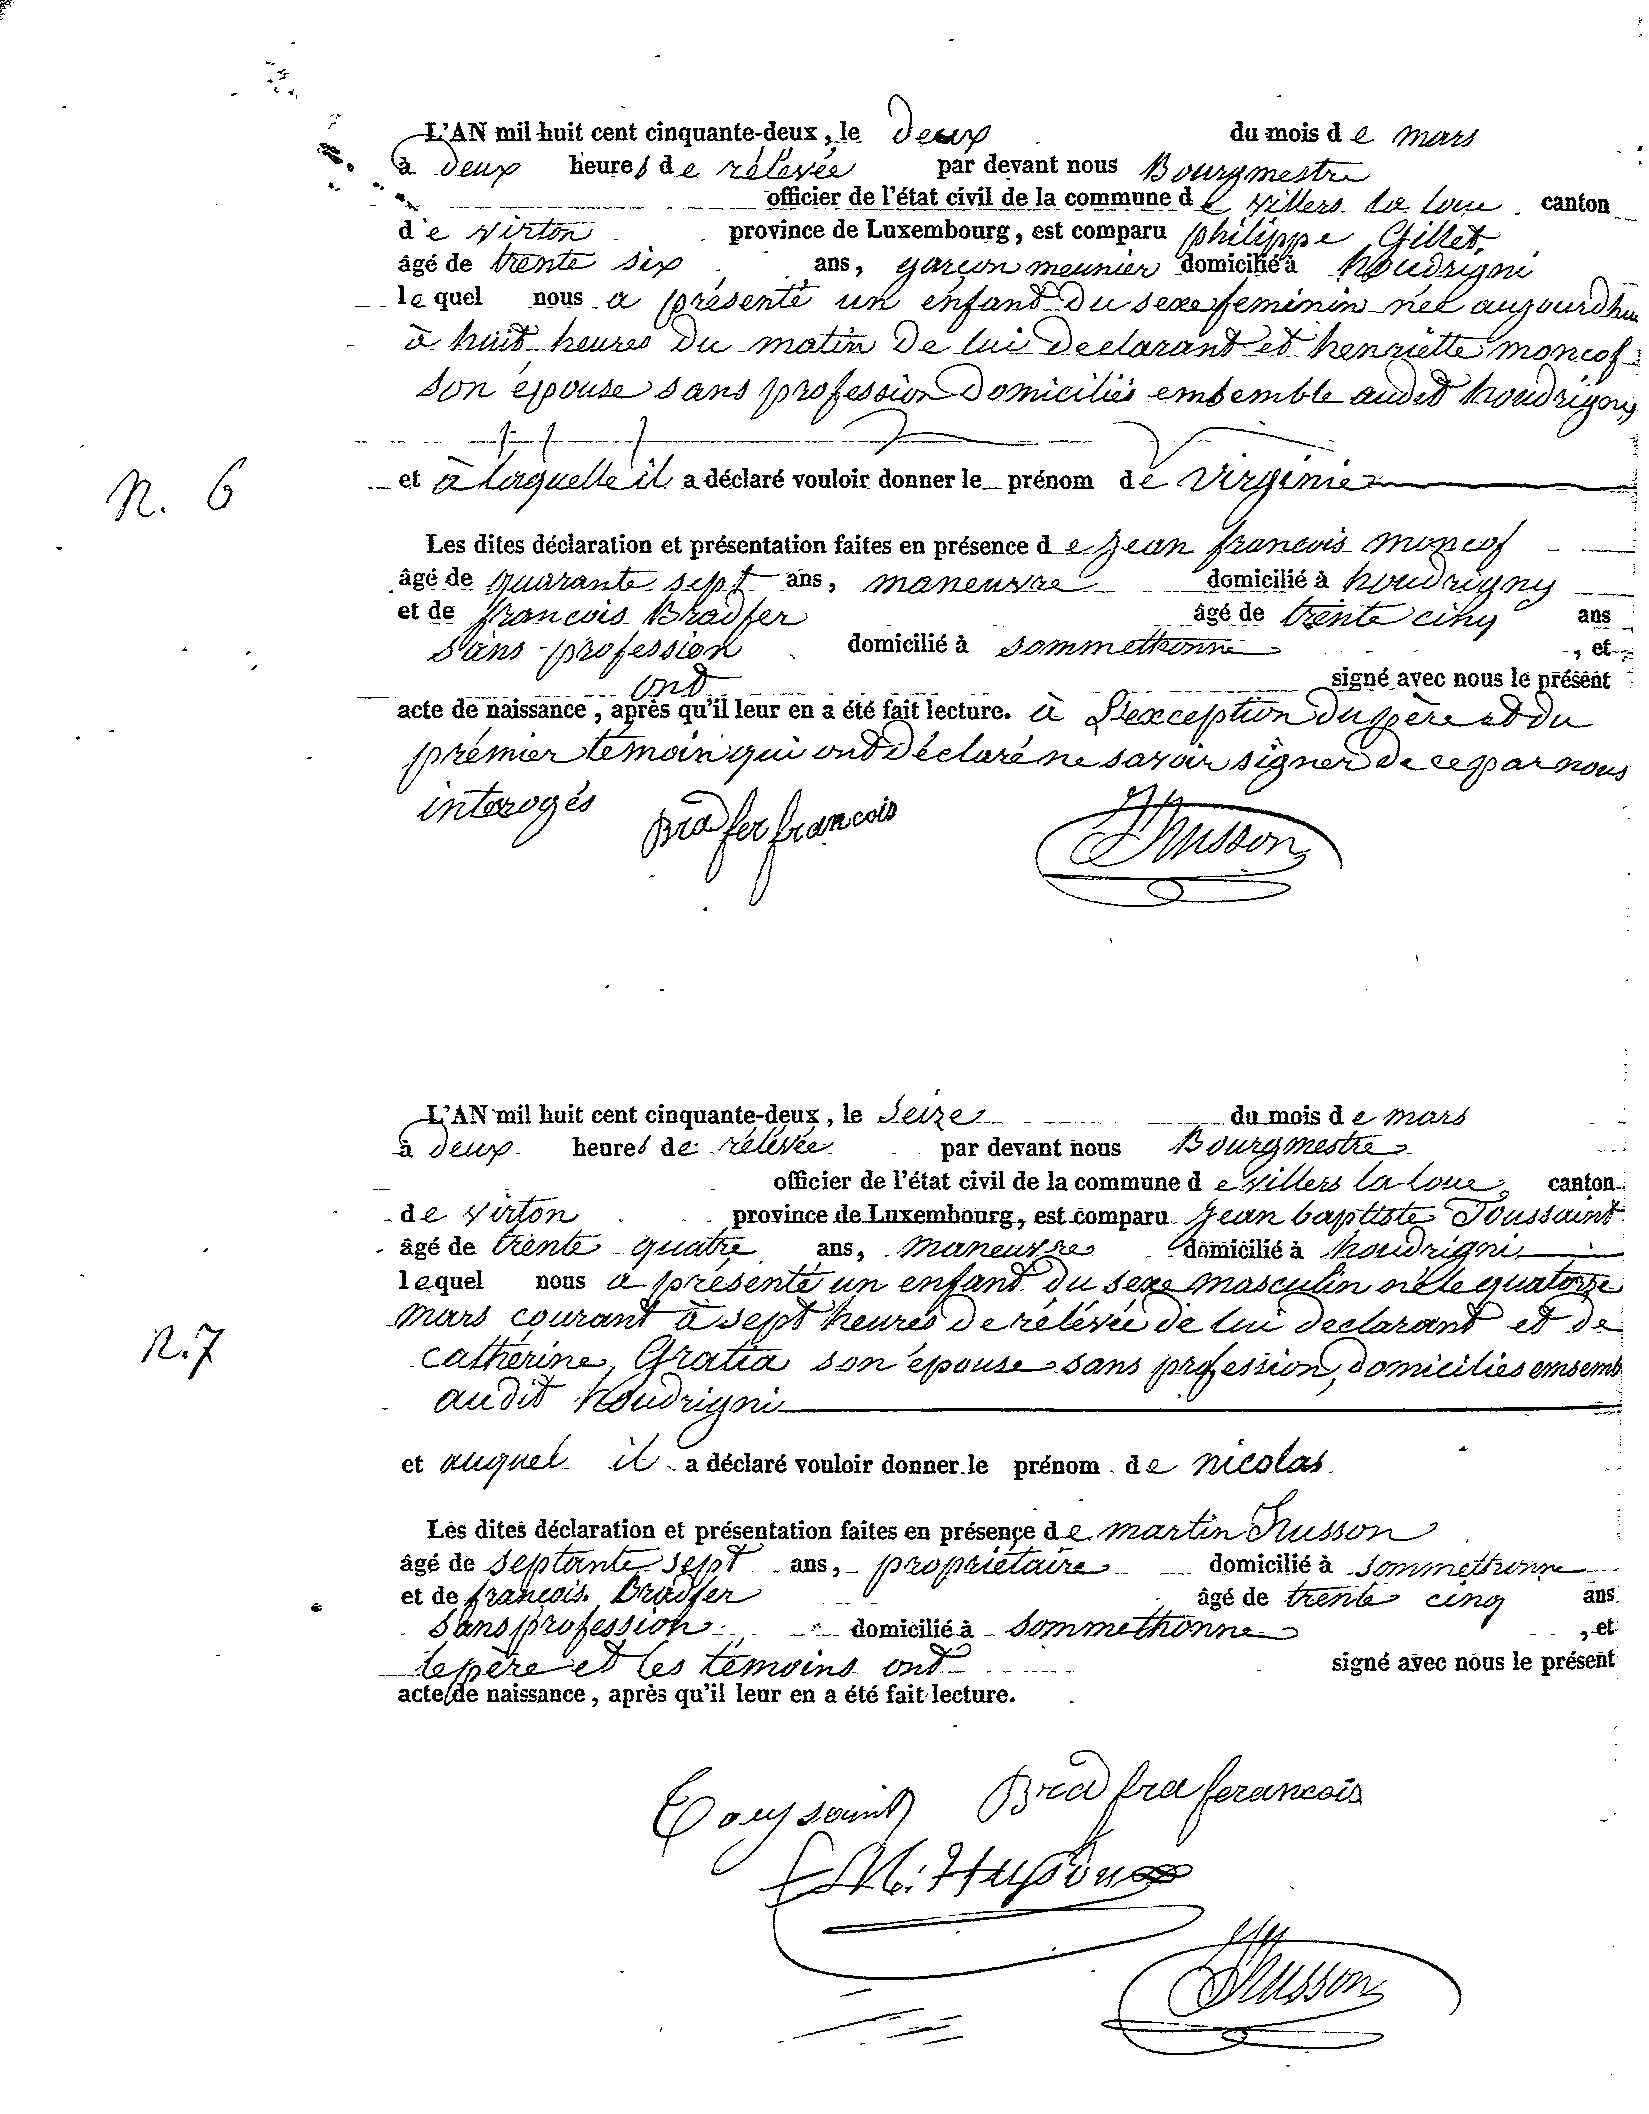 L'AN mil huit cent cinquante-deux, le deux du mois de mars
à deux heures de rélévée par devant nous Bourgmestre
officier de l'état civil de la commune de villers la loue canton
de virton province de Luxembourg, est comparu philippe Gillet
âgé de trente six ans, garçon meunier domicilié à houdrigni
lequel nous a présenté un enfant du sexe feminin née aujourdhui
à huit heures du matin de lui declarant et henriette moncof
son épouse sans profession domiciliés embemble audit houdrigny
N. 6
et à laquelle il a déclaré vouloir donner le prénom de virginie
Les dites déclaration et présentation faites en présence de jean francois moncof
âgé de quarante sept ans, maneuvre domicilié à houdrigny
et de francois Bradfer âgé de trente cinq ans
sans profession domicilié à sommethonne , et
ont signé avec nous le présent
acte de naissance, après qu'il leur en a été fait lecture. à L'exception du père et du
prémier témoin qui ont déclaré ne savoir signer de ce par nous
interogés
Bradfer francois
Husson
L'AN mil huit cent cinquante-deux, le seize du mois de mars
à deux heures de rélévée par devant nous Bourgmestre
officier de l'état civil de la commune de villers la loue canton
de virton province de Luxembourg, est comparu jean baptiste Toussaint
âgé de trente quatre ans, maneuvre domicilié à houdrigni
lequel nous a présenté un enfant du sexe masculin né le quatorze
mars courant à sept heures de rélévée de lui declarant et de
N. 7
catherine Gratia son épouse sans profession, domiciliés emsemb
audit houdrigni
et auquel il a déclaré vouloir donner le prénom de nicolas
Les dites déclaration et présentation faites en présence de martin husson
âgé de septante sept ans, propriétaire domicilié à sommethonne
et de francois Bradfer âgé de trente cinq ans
sans profession domicilié à sommethonne , et
le père et les témoins ont signé avec nous le présent
acte de naissance, après qu'il leur en a été fait lecture.
Toussaint
Bradfra ferancois
M. Husson
Husson